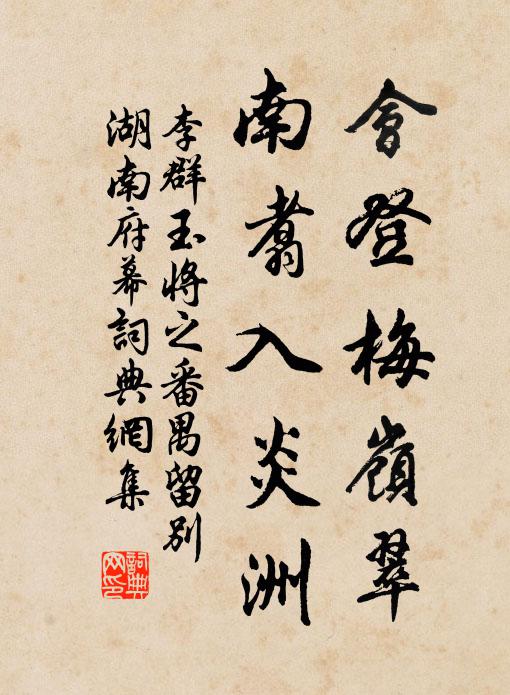 會登梅嶺翠
南翥入炎洲
李群玉將之番禺留別
湖南府幕詞典網集
詞典
网印